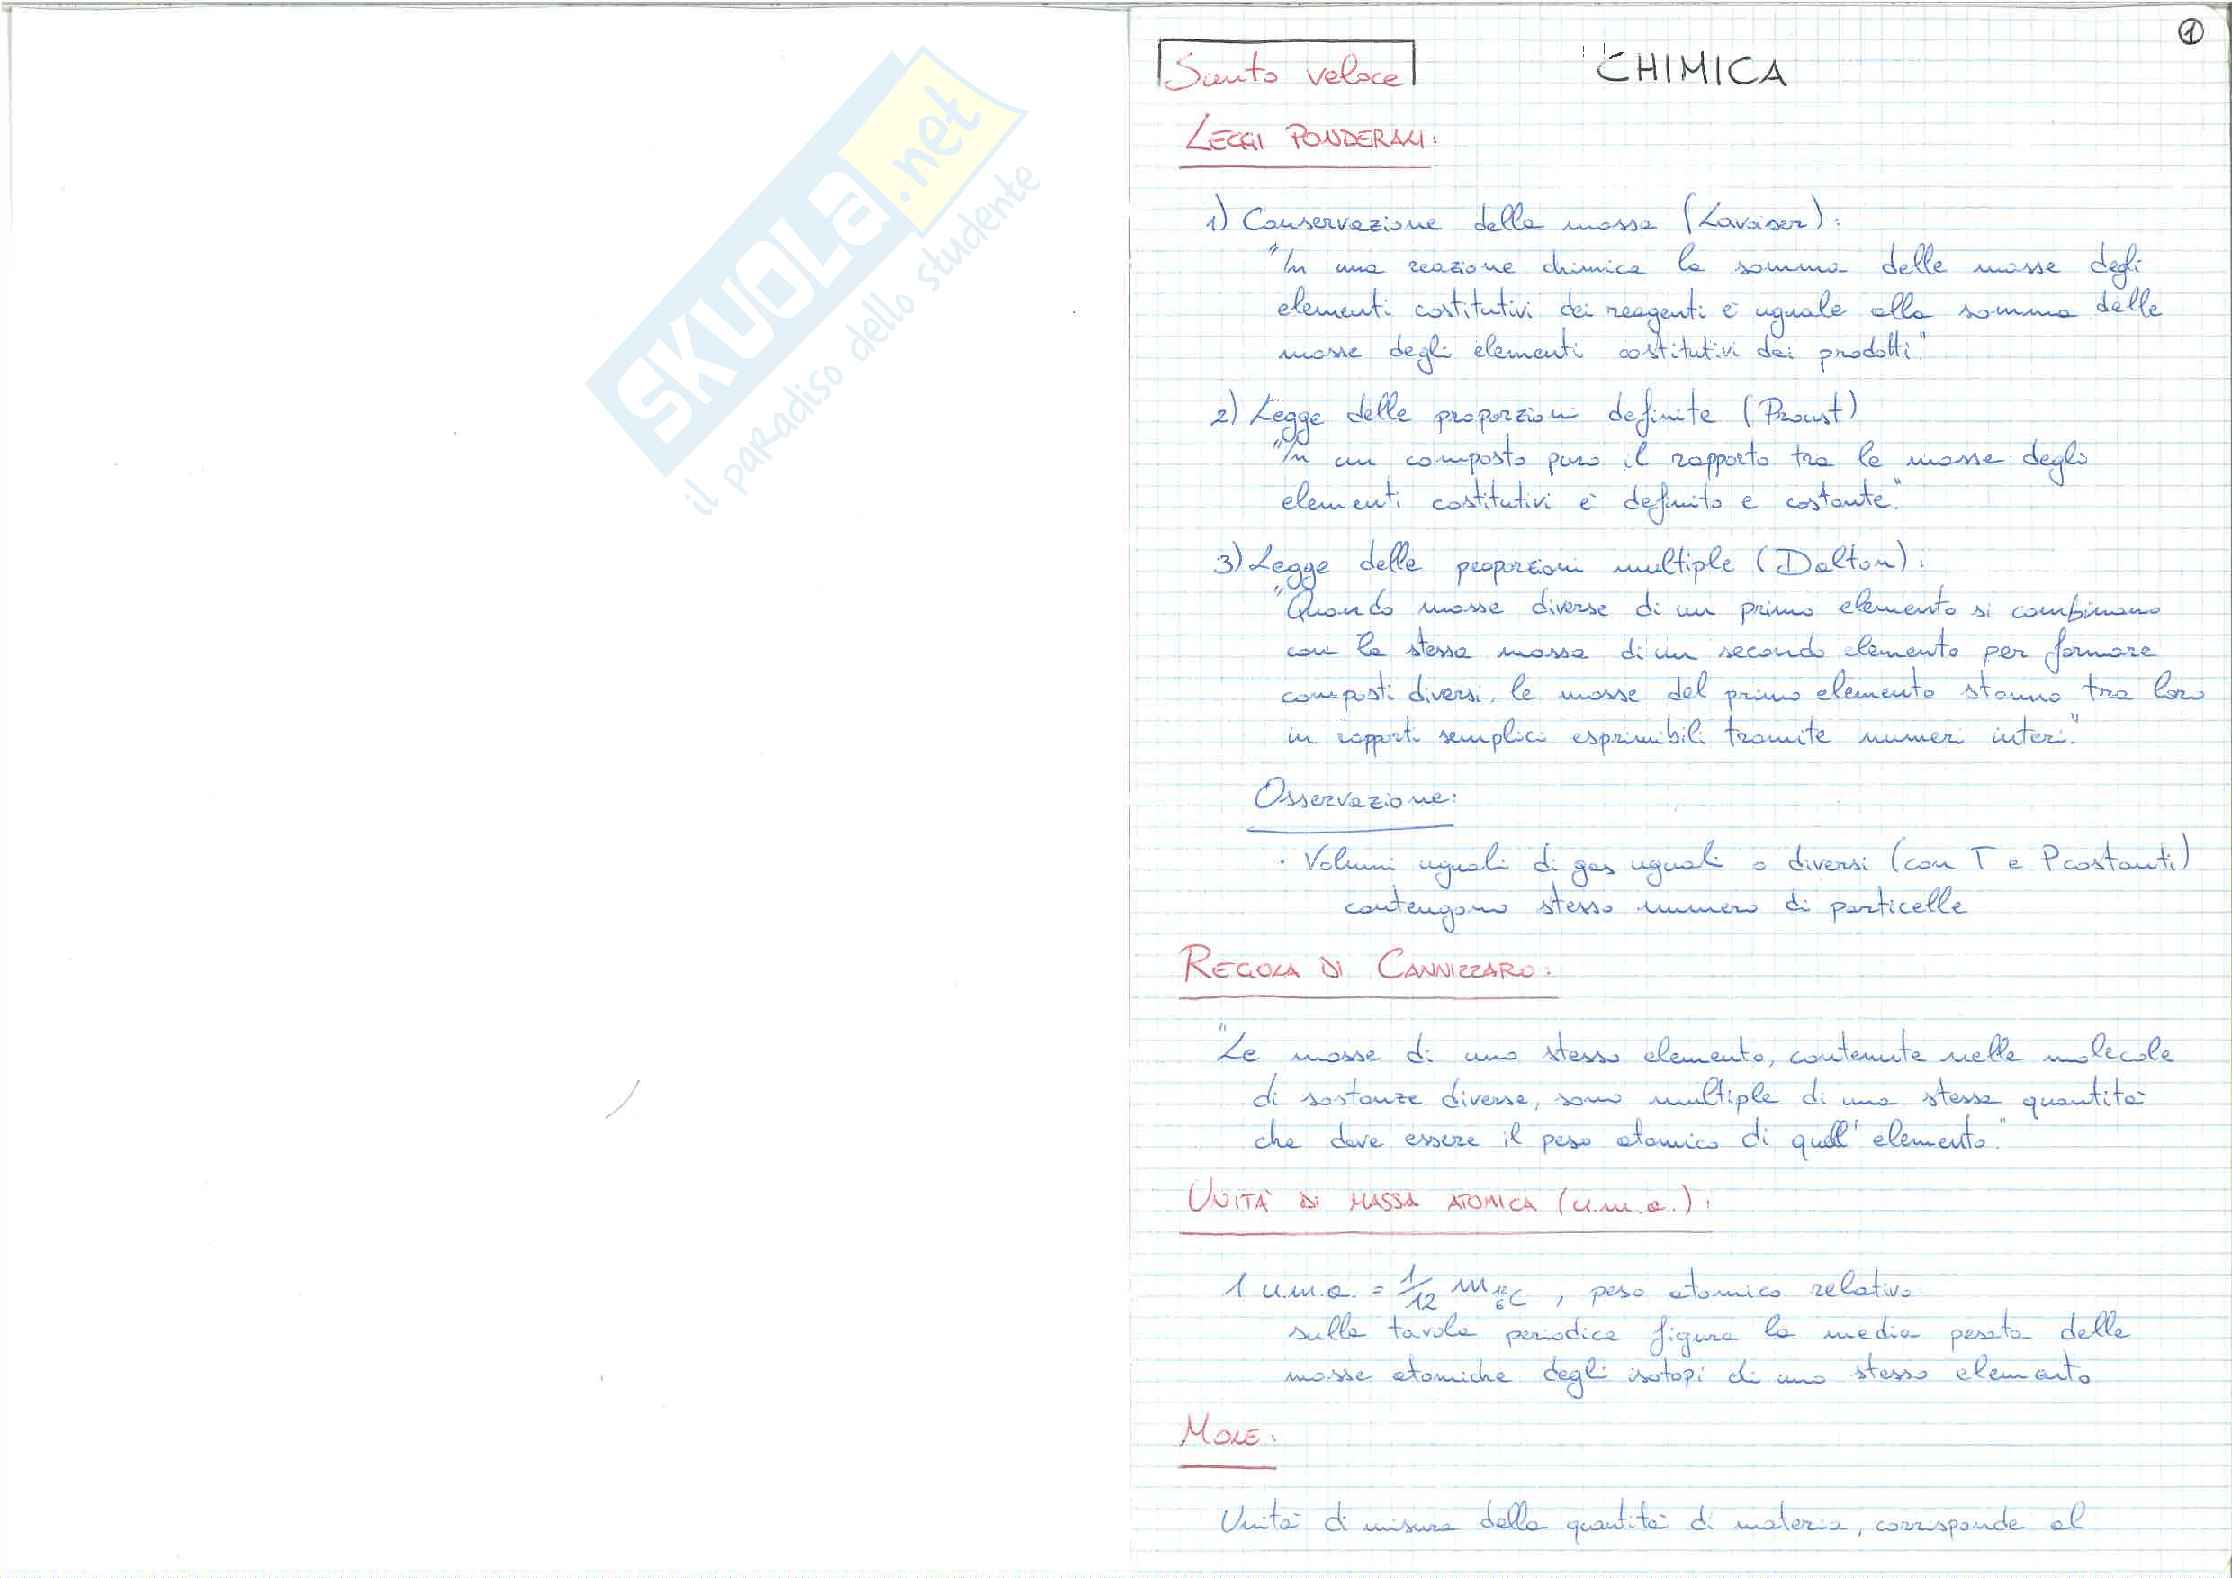 SKUOLA.net
il paradiso dello studente
1
Sunto veloce
"CHIMICA
LEGGI PONDERALI:
1) Conservazione della massa (Lavoiser):
"In una reazione chimica la somma delle masse degli
elementi costitutivi dei reagenti è uguale alla somma delle
masse degli elementi costitutivi dei prodotti"
2) Legge delle proporzioni definite (Proust)
"In un composto puro il rapporto tra le masse degli
elementi costitutivi è definito e costante."
3) Legge delle proporzioni multiple (Dalton):
"Quando masse diverse di un primo elemento si combinano
con la stessa massa di un secondo elemento per formare
composti diversi, le masse del primo elemento stanno tra loro
in rapporti semplici esprimibili tramite numeri interi."
Osservazione:
· Volumi uguali di gas uguali o diversi (con T e P costanti)
contengono stesso numero di particelle
REGOLA DI CANNIZZARO:
"Le masse di uno stesso elemento, contenute nelle molecole
di sostanze diverse, sono multiple di una stessa quantità
che deve essere il peso atomico di quell'elemento."
UNITÀ DI MASSA ATOMICA (u.m.a.):
1 u.m.a. = 1/12 m ¹²₆C, peso atomico relativo
sulla tavola periodica figura la media pesata delle
masse atomiche degli isotopi di uno stesso elemento
MOLE:
Unità di misura della quantità di materia, corrisponde al